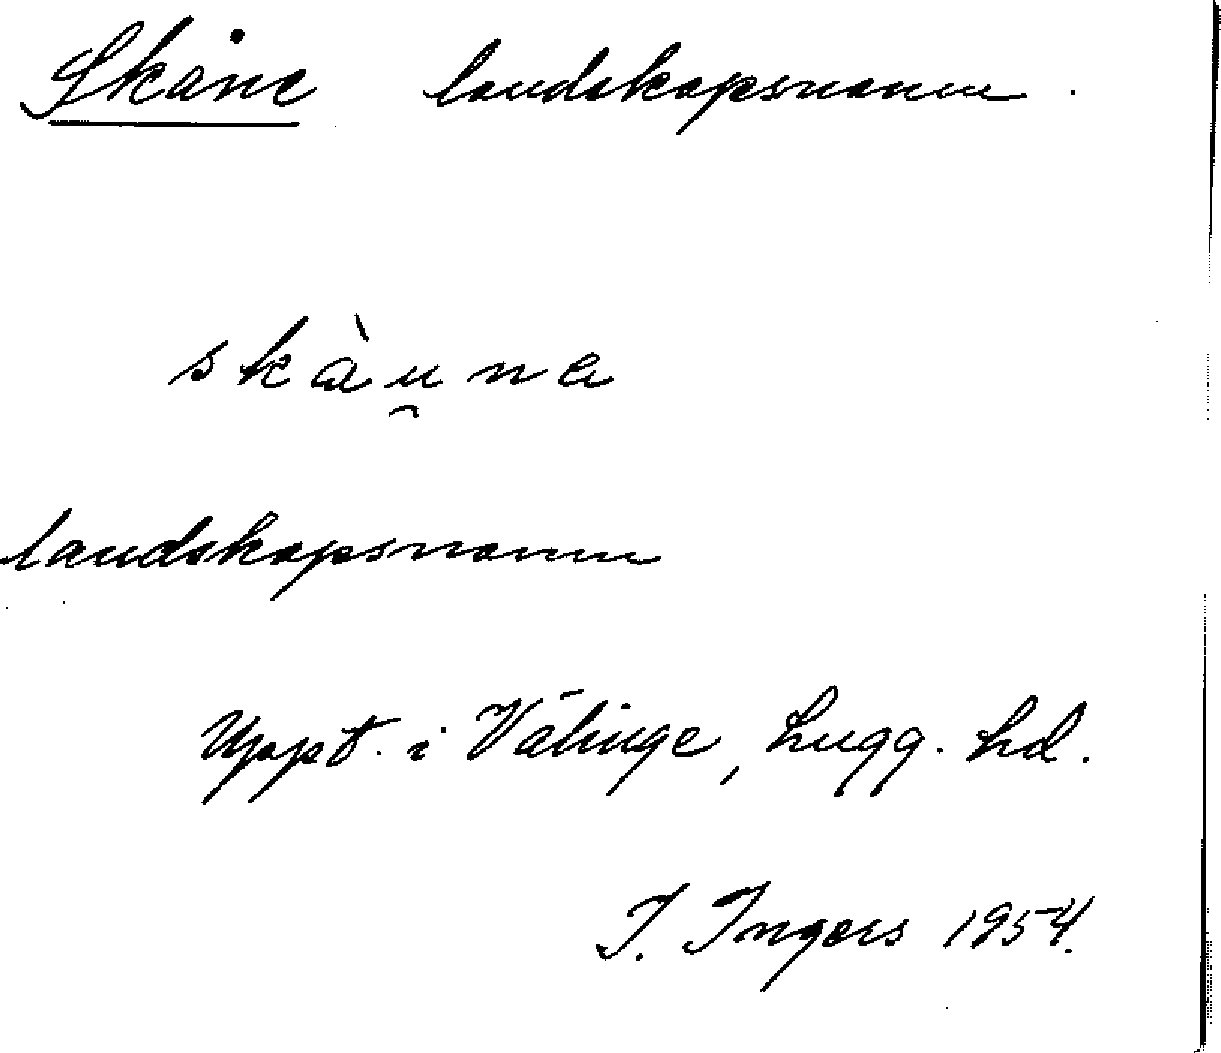 Skåne landskapsnamn.
skàu̯na
landskapsnamn
Uppt. i Välinge, Lugg. hd.
I. Ingers 1954.